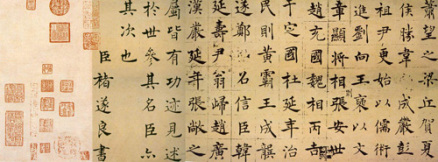 蕭望之梁丘賀夏
侯勝韋玄成嚴彭
祖尹更始以儒術
進劉向王褒以文
章顯將相張安世
趙充國魏相丙吉
于定國杜延年治
民則黃霸王成龔
遂鄭弘召信臣韓
延壽尹翁歸趙廣
漢嚴延年張敞之
屬皆有功迹見述
於世參其名臣亦
其次也
臣褚遂良書